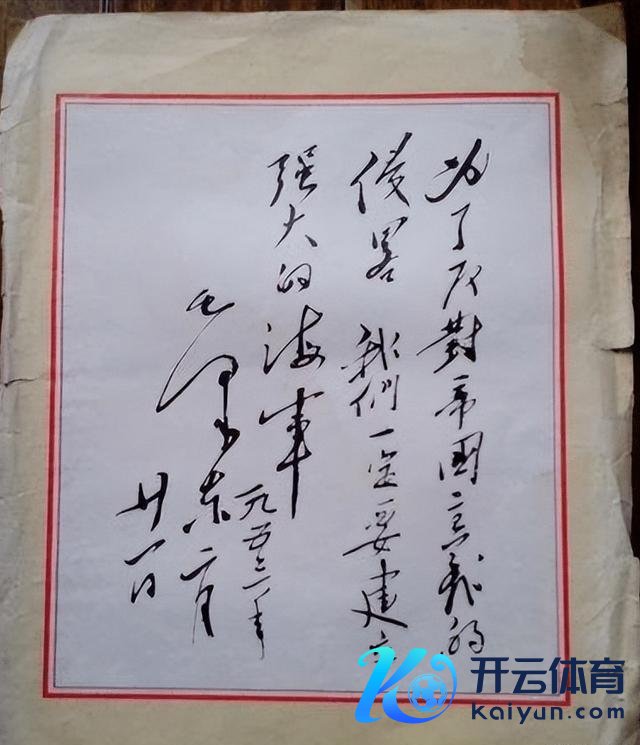 为了反對帝國主義的
侵畧 我們一定要建立
强大的海軍
毛澤东
一九五三年
二月
廿一日
开云体育
Kaiyun.com